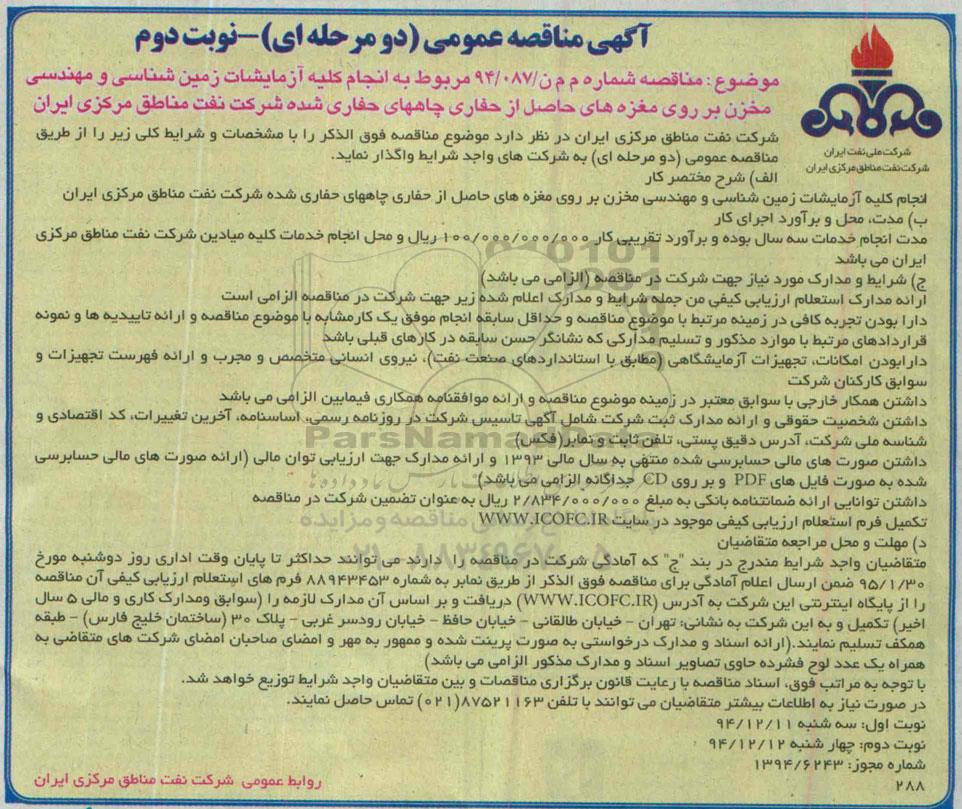 آگهی مناقصه عمومی (دو مرحله ای)-نوبت دوم
موضوع: مناقصه شماره م م ن/۹۴/۰۸۷ مربوط به انجام کلیه آزمایشات زمین شناسی و مهندسی
مخزن بر روی مغزه های حاصل از حفاری چاههای حفاری شده شرکت نفت مناطق مرکزی ایران
شرکت ملی نفت ایران
شرکت نفت مناطق مرکزی ایران
شرکت نفت مناطق مرکزی ایران در نظر دارد موضوع مناقصه فوق الذکر را با مشخصات و شرایط کلی زیر را از طریق
مناقصه عمومی (دو مرحله ای) به شرکت های واجد شرایط واگذار نماید.
الف) شرح مختصر کار
انجام کلیه آزمایشات زمین شناسی و مهندسی مخزن بر روی مغزه های حاصل از حفاری چاههای حفاری شده شرکت نفت مناطق مرکزی ایران
ب) مدت، محل و برآورد اجرای کار
مدت انجام خدمات سه سال بوده و برآورد تقریبی کار ۱۰۰/۰۰۰/۰۰۰/۰۰۰ ریال و محل انجام خدمات کلیه میادین شرکت نفت مناطق مرکزی
ایران می باشد
ج) شرایط و مدارک مورد نیاز جهت شرکت در مناقصه (الزامی می باشد)
ارائه مدارک استعلام ارزیابی کیفی من جمله شرایط و مدارک اعلام شده زیر جهت شرکت در مناقصه الزامی است
دارا بودن تجربه کافی در زمینه مرتبط با موضوع مناقصه و حداقل سابقه انجام موفق یک کارمشابه با موضوع مناقصه و ارائه تاییدیه ها و نمونه
قراردادهای مرتبط با موارد مذکور و تسلیم مدارکی که نشانگر حسن سابقه در کارهای قبلی باشد
دارابودن امکانات، تجهیزات آزمایشگاهی (مطابق با استانداردهای صنعت نفت)، نیروی انسانی متخصص و مجرب و ارائه فهرست تجهیزات و
سوابق کارکنان شرکت
داشتن همکار خارجی با سوابق معتبر در زمینه موضوع مناقصه و ارائه موافقتنامه همکاری فیمابین الزامی می باشد
داشتن شخصیت حقوقی و ارائه مدارک ثبت شرکت شامل آگهی تاسیس شرکت در روزنامه رسمی، اساسنامه، آخرین تغییرات، کد اقتصادی و
شناسه ملی شرکت، آدرس دقیق پستی، تلفن ثابت و نمابر(فکس)
داشتن صورت های مالی حسابرسی شده منتهی به سال مالی ۱۳۹۳ و ارائه مدارک جهت ارزیابی توان مالی (ارائه صورت های مالی حسابرسی
شده به صورت فایل های PDF و بر روی CD جداگانه الزامی می باشد)
داشتن توانایی ارائه ضمانتنامه بانکی به مبلغ ۲/۸۳۴/۰۰۰/۰۰۰ ریال به عنوان تضمین شرکت در مناقصه
تکمیل فرم استعلام ارزیابی کیفی موجود در سایت WWW.ICOFC.IR
د) مهلت و محل مراجعه متقاضیان
متقاضیان واجد شرایط مندرج در بند "ج" که آمادگی شرکت در مناقصه را دارند می توانند حداکثر تا پایان وقت اداری روز دوشنبه مورخ
۹۵/۱/۳۰ ضمن ارسال اعلام آمادگی برای مناقصه فوق الذکر از طریق نمابر به شماره ۸۸۹۴۳۴۵۳ فرم های استعلام ارزیابی کیفی آن مناقصه
را از پایگاه اینترنتی این شرکت به آدرس (WWW.ICOFC.IR) دریافت و بر اساس آن مدارک لازمه را (سوابق ومدارک کاری و مالی ۵ سال
اخیر) تکمیل و به این شرکت به نشانی: تهران - خیابان طالقانی - خیابان حافظ - خیابان رودسر غربی - پلاک ۳۰ (ساختمان خلیج فارس) - طبقه
همکف تسلیم نمایند.(ارائه اسناد و مدارک درخواستی به صورت پرینت شده و ممهور به مهر و امضای صاحبان امضای شرکت های متقاضی به
همراه یک عدد لوح فشرده حاوی تصاویر اسناد و مدارک مذکور الزامی می باشد)
با توجه به مراتب فوق، اسناد مناقصه با رعایت قانون برگزاری مناقصات و بین متقاضیان واجد شرایط توزیع خواهد شد.
در صورت نیاز به اطلاعات بیشتر متقاضیان می توانند با تلفن ۸۷۵۲۱۱۶۳(۰۲۱) تماس حاصل نمایند.
نوبت اول: سه شنبه ۹۴/۱۲/۱۱
نوبت دوم: چهار شنبه ۹۴/۱۲/۱۲
شماره مجوز: ۱۳۹۴/۶۲۴۳
۲۸۸
روابط عمومی شرکت نفت مناطق مرکزی ایران